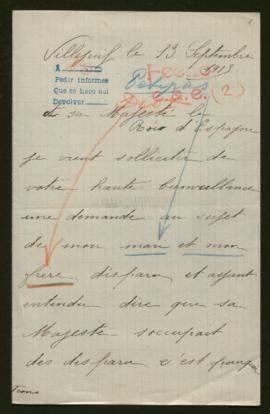 Villeneuf le 13 Septembre
1918
Pedir informes
Que se hace aquí
Devolver
(2)
A sa Majesté le
Rois d'Espagne
je vient solliciter de
votre haute bienveillance
une demande au sujet
de mon mari et mon
frere disparu et ayant
entendu dire que sa
Majesté s'occupait
des disparu c'est pourquoi